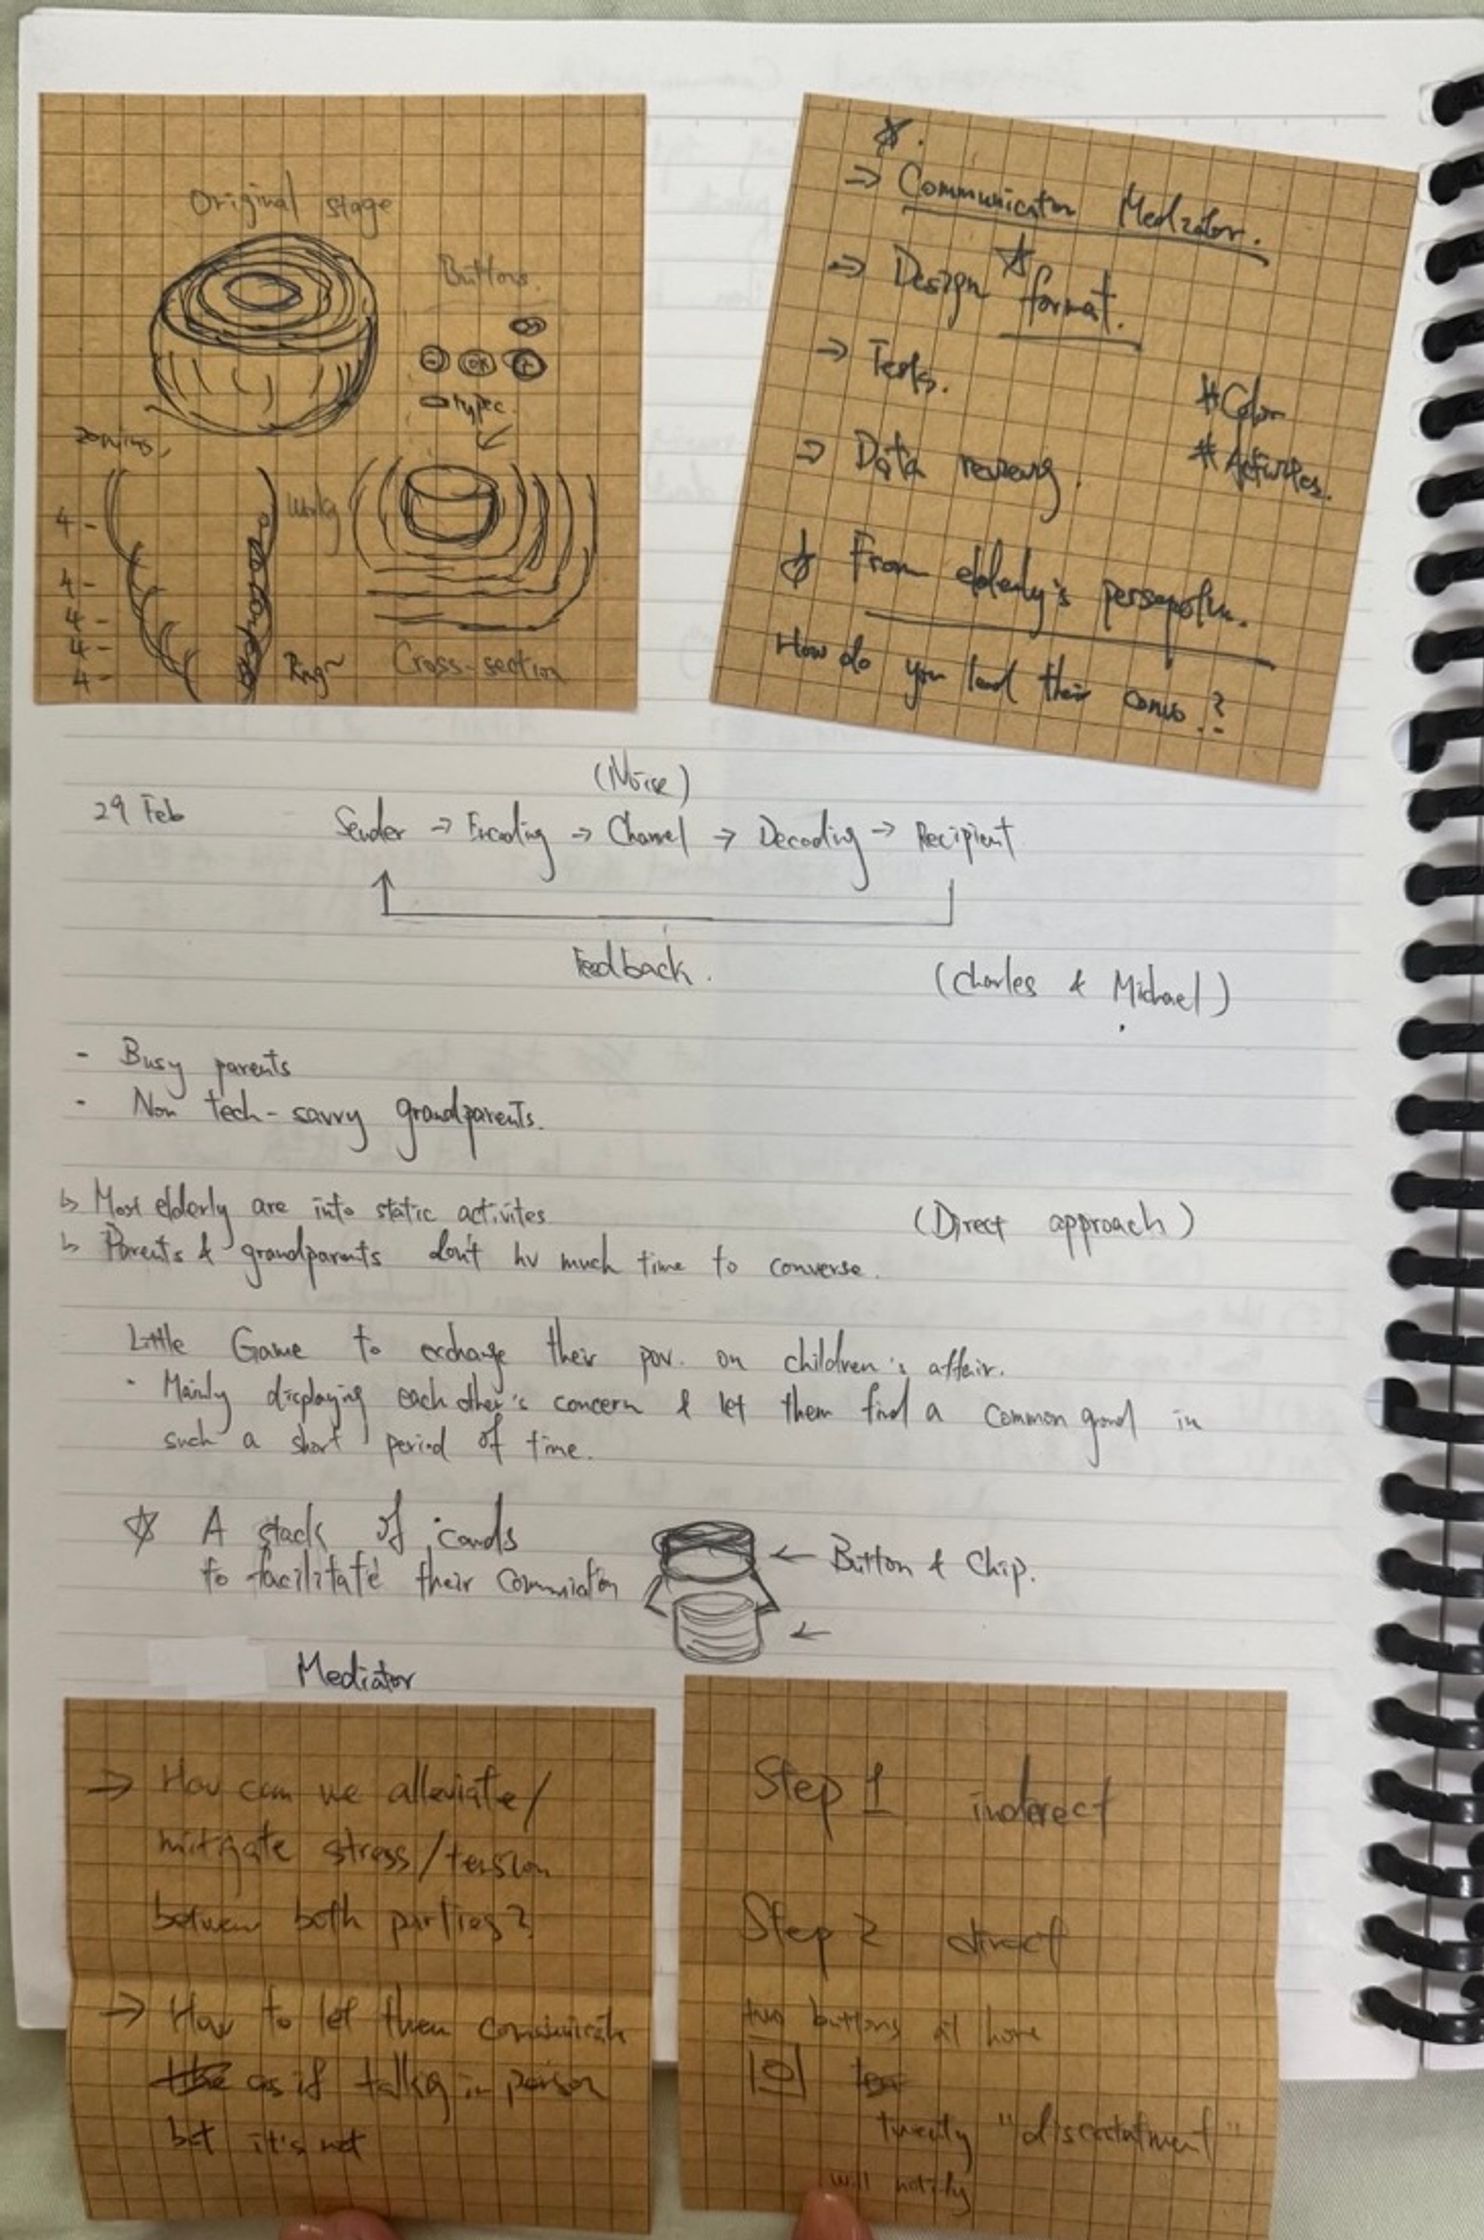 Original stage
Buttons.
- OK +
typec
4 -
4 -
4 -
4 -
4 -
Ring~
Cross-section
⇒ Communicator Mediator.
⇒ Design ☆ format.
⇒ Tests.
#Color
⇒ Data
#Activites.
☆ From elderly's
How do you lead their convo.?
29 Feb
(Noise)
Sender → Encoding → Channel → Decoding → Recipient
Feedback.
(Charles & Michael)
- Busy parents
- Non tech-savvy grandparents.
↳ Most elderly are into static activites
(Direct approach)
↳ Parents & grandparents don't hv much time to converse.
Little Game to exchange their pov. on children's affair.
· Mainly displaying each other's concern & let them find a common grond in
such a short period of time.
☆ A stack of cards
to facilitate their
← Button & Chip.
←
Mediator
→ How can we alleviate/
mitigate stress/tension
between both parties?
→ How to let them
as if talking in person
but it's not
Step 1 inderect
Step 2 direct
two buttons at home
twenty
will notify